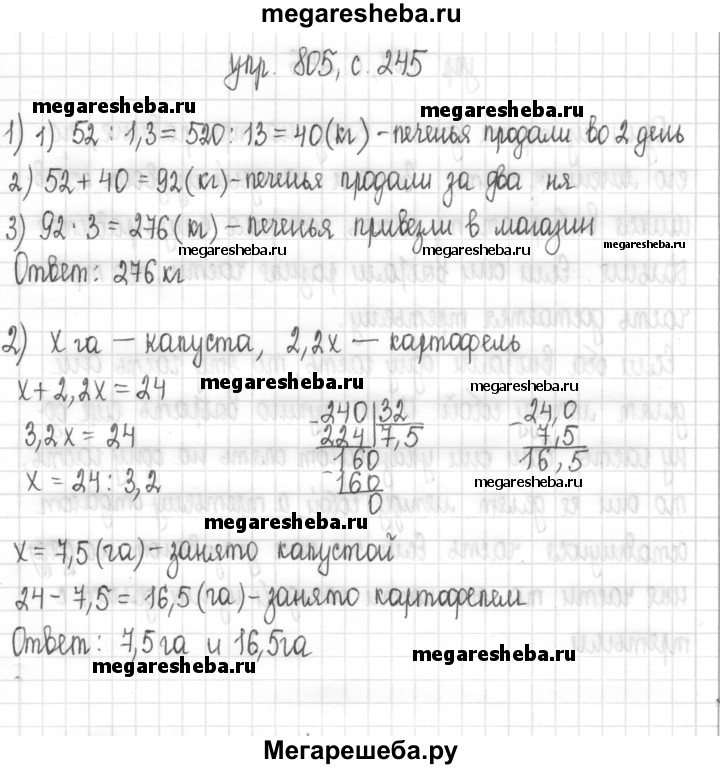 megaresheba.ru
упр. 805, с. 245
megaresheba.ru megaresheba.ru
1) 1) 52 : 1,3 = 520 : 13 = 40 (кг) - печенья продали во 2 день
2) 52 + 40 = 92 (кг) - печенья продали за два ня
3) 92 · 3 = 276 (кг) - печенья привезли в магазин
megaresheba.ru megaresheba.ru megaresheba.ru
Ответ: 276 кг
2) x га — капуста, 2,2x — картофель
x + 2,2x = 24 megaresheba.ru megaresheba.ru
3,2x = 24
x = 24 : 3,2
240 | 32
224 | 7,5
160
160
0
24,0
7,5
16,5
megaresheba.ru
megaresheba.ru
x = 7,5 (га) - занято капустой
24 - 7,5 = 16,5 (га) - занято картофелем
Ответ: 7,5 га и 16,5 га
megaresheba.ru megaresheba.ru
Мегарешеба.ру